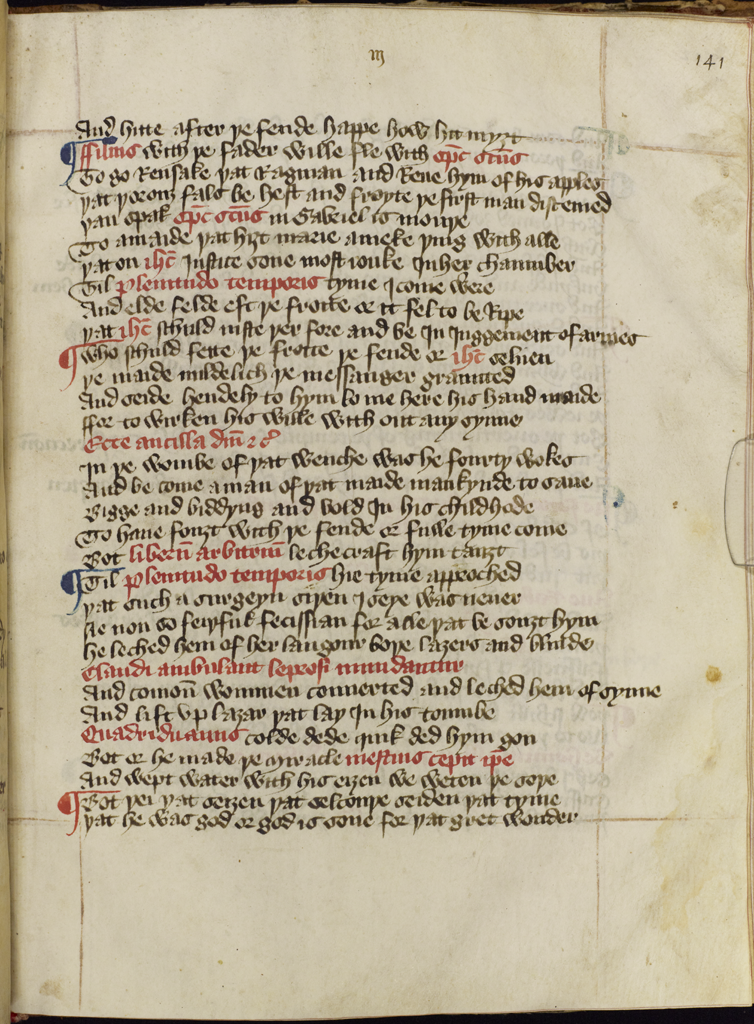 iij
141
And hitte after þe fende happe how hit myȝt
¶ ffilius with þe fader wille fle with sp̄c sc̄us
To go Rensake þat Ragman and Reue hym of his apples
þat þorow fals be hest and froyte þe first man disceiued
þan spak sp̄c sc̄us in Gabriel is mouþe
To amaide þat hiȝt marie ameke þing with alle
þat on ih̄c Iustice sone most iouke In her chaumber
Til plenitudo temporis tyme I come were
And elde felde eft þe froite or it fel to be Ripe
þat ih̄c schuld iuste þer fore and be In Juggement of armes
¶ Who schuld fette þe froite þe fende or ih̄c seluen
þe maide mildelich þe messanger graunted
And seide hendely to hym lo me here his hand maide
ffor to wirken his wille with out any synne
Ecce ancilla dn̄i ⁊ cᵃ
In þe wombe of þat wenche was he fourty wokes
And be come aman of þat maide mankynde to saue
Bigge and biddyng and bold In his childhode
To haue fouȝt with þe fende or fulle tyme come
Bot liberū arbitriū leche craft hym tauȝt
¶ Til plenitudo temporis hie tyme approched
þat such a surgeyn siþen I seye was neuer
Ne non so feiþful fecissian for alle þat be souȝt hym
he leched hem of her langour boþe lazers and blinde
Claudi ambulant leprosi mundantur
And comoū wommen conuerted and leched hem of synne
And lift vp lazar þat lay In his toumbe
Quadriduanus colde dede quik ded hym gon
Bot or he made þe myracle mestius cepit ip̄e
And wept water with his eiȝen we weten þe soþe
¶ Bot þei þat seiȝen þat selcouþe seiden þat tyme
þat he was god or god is sone for þat gret wonder